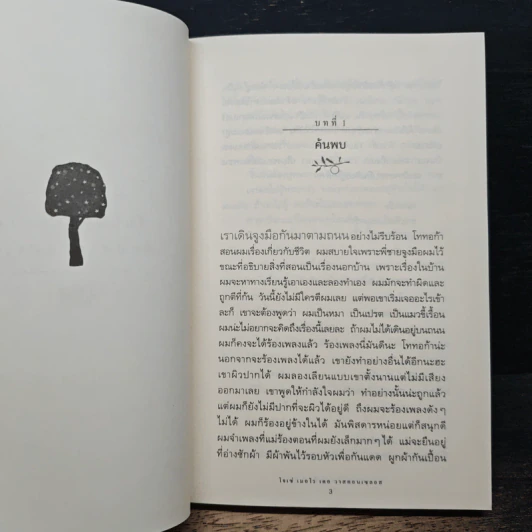 บทที่ 1
ค้นพบ
เราเดินจูงมือกันมาตามถนนอย่างไม่รีบร้อน โททอก้า
สอนผมเรื่องเกี่ยวกับชีวิต ผมสบายใจเพราะพี่ชายจูงมือผมไว้
ขณะที่อธิบายสิ่งที่สอนเป็นเรื่องนอกบ้าน เพราะเรื่องในบ้าน
ผมจะหาทางเรียนรู้เอาเองและลองทำเอง ผมมักจะทำผิดและ
ถูกตีที่ก้น วันนี้ยังไม่มีใครตีผมเลย แต่พอเขาเริ่มเจออะไรเข้า
ละก็ เขาจะต้องพูดว่า ผมเป็นหมา เป็นเปรต เป็นแมวขี้เรื้อน
ผมน่ะไม่อยากจะคิดถึงเรื่องนี้เลยละ ถ้าผมไม่ได้เดินอยู่บนถนน
ผมก็คงจะได้ร้องเพลงแล้ว ร้องเพลงนี่มันดีนะ โททอก้าน่ะ
นอกจากจะร้องเพลงได้แล้ว เขายังทำอย่างอื่นได้อีกนะฮะ
เขาผิวปากได้ ผมลองเลียนแบบเขาตั้งนานแต่ไม่มีเสียง
ออกมาเลย เขาพูดให้กำลังใจผมว่า ทำอย่างนั้นน่ะถูกแล้ว
แต่ผมก็ยังไม่มีปากที่จะผิวได้อยู่ดี ถึงผมจะร้องเพลงดังๆ
ไม่ได้ ผมก็ร้องอยู่ข้างในได้ มันพิสดารหน่อยแต่ก็สนุกดี
ผมจำเพลงที่แม่ร้องตอนที่ผมยังเล็กมากๆ ได้ แม่จะยืนอยู่
ที่อ่างซักผ้า มีผ้าพันไว้รอบหัวเพื่อกันแดด ผูกผ้ากันเปื้อน
โจเซ่ เมาโร เดอ วาสคอนเซลอส
3